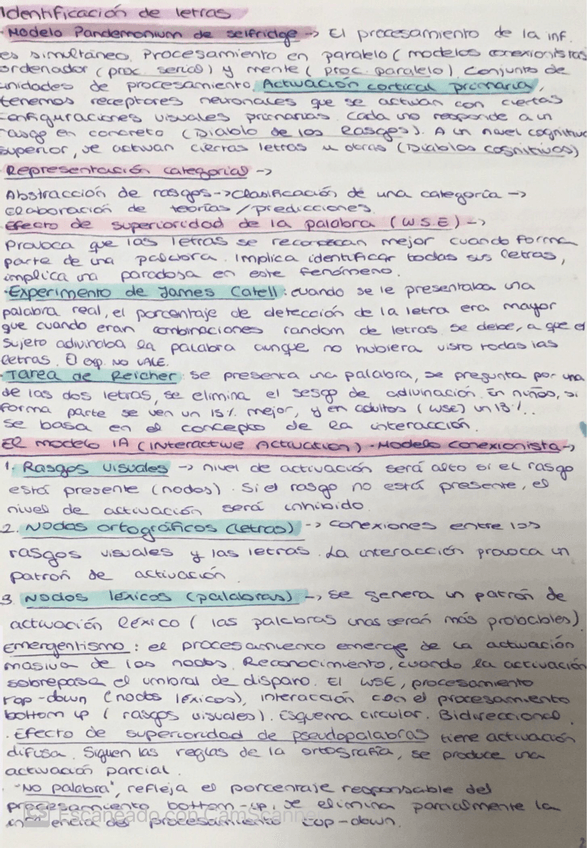 Identificación de letras
-Modelo Pandemonium de Selfridge -> El procesamiento de la inf.
es simultáneo. Procesamiento en paralelo (modelos conexionistas
ordenador (proc. serial) y mente (proc. paralelo). Conjunto de
unidades de procesamiento. Activación cortical primaria,
tenemos receptores neuronales que se activan con ciertas
configuraciones visuales primarias. Cada uno responde a un
rasgo en concreto (Diablo de los Rasgos). A un nivel cognitivo
superior, se activan ciertas letras u otras (Diablos cognitivos)
Representación categorial ->
Abstracción de rasgos -> clasificación de una categoría ->
elaboración de teorías/predicciones.
Efecto de superioridad de la palabra (WSE) ->
Provoca que las letras se reconozcan mejor cuando forma
parte de una palabra. Implica identificar todas sus letras,
implica una paradoja en este fenómeno.
-Experimento de James Catell: cuando se le presentaba una
palabra real, el porcentaje de detección de la letra era mayor
que cuando eran combinaciones random de letras. se debe, a que el
sujeto adivinaba la palabra aunque no hubiera visto todas las
letras. El exp. NO VALE.
-Tarea de Reicher: se presenta una palabra, se pregunta por una
de las dos letras, se elimina el sesgo de adivinación. En niños, si
forma parte se ven un 15% mejor, y en adultos (WSE) un 13%.
se basa en el concepto de la interacción.
El modelo IA (Interactive Activation) - Modelo conexionista ->
1. Rasgos visuales -> nivel de activación será alto si el rasgo
está presente (nodos). Si el rasgo no está presente, el
nivel de activación será inhibido.
2. Nodos ortográficos (letras) -> conexiones entre los
rasgos visuales y las letras. La interacción provoca un
patrón de activación.
3. Nodos léxicos (palabras) -> se genera un patrón de
activación léxico (las palabras unas serán más probables)
Emergentismo: el procesamiento emerge de la activación
masiva de los nodos. Reconocimiento, cuando la activación
sobrepasa el umbral de disparo. El WSE, procesamiento
top-down (nodos léxicos), interacción con el procesamiento
bottom up (rasgos visuales). Esquema circular. Bidireccional.
-Efecto de superioridad de pseudopalabras tiene activación
difusa. Siguen las reglas de la ortografía, se produce una
activación parcial.
-"No palabra", refleja el porcentaje responsable del
procesamiento bottom-up, se elimina parcialmente la
influencia del procesamiento top-down.
Escaneado con CamScanner